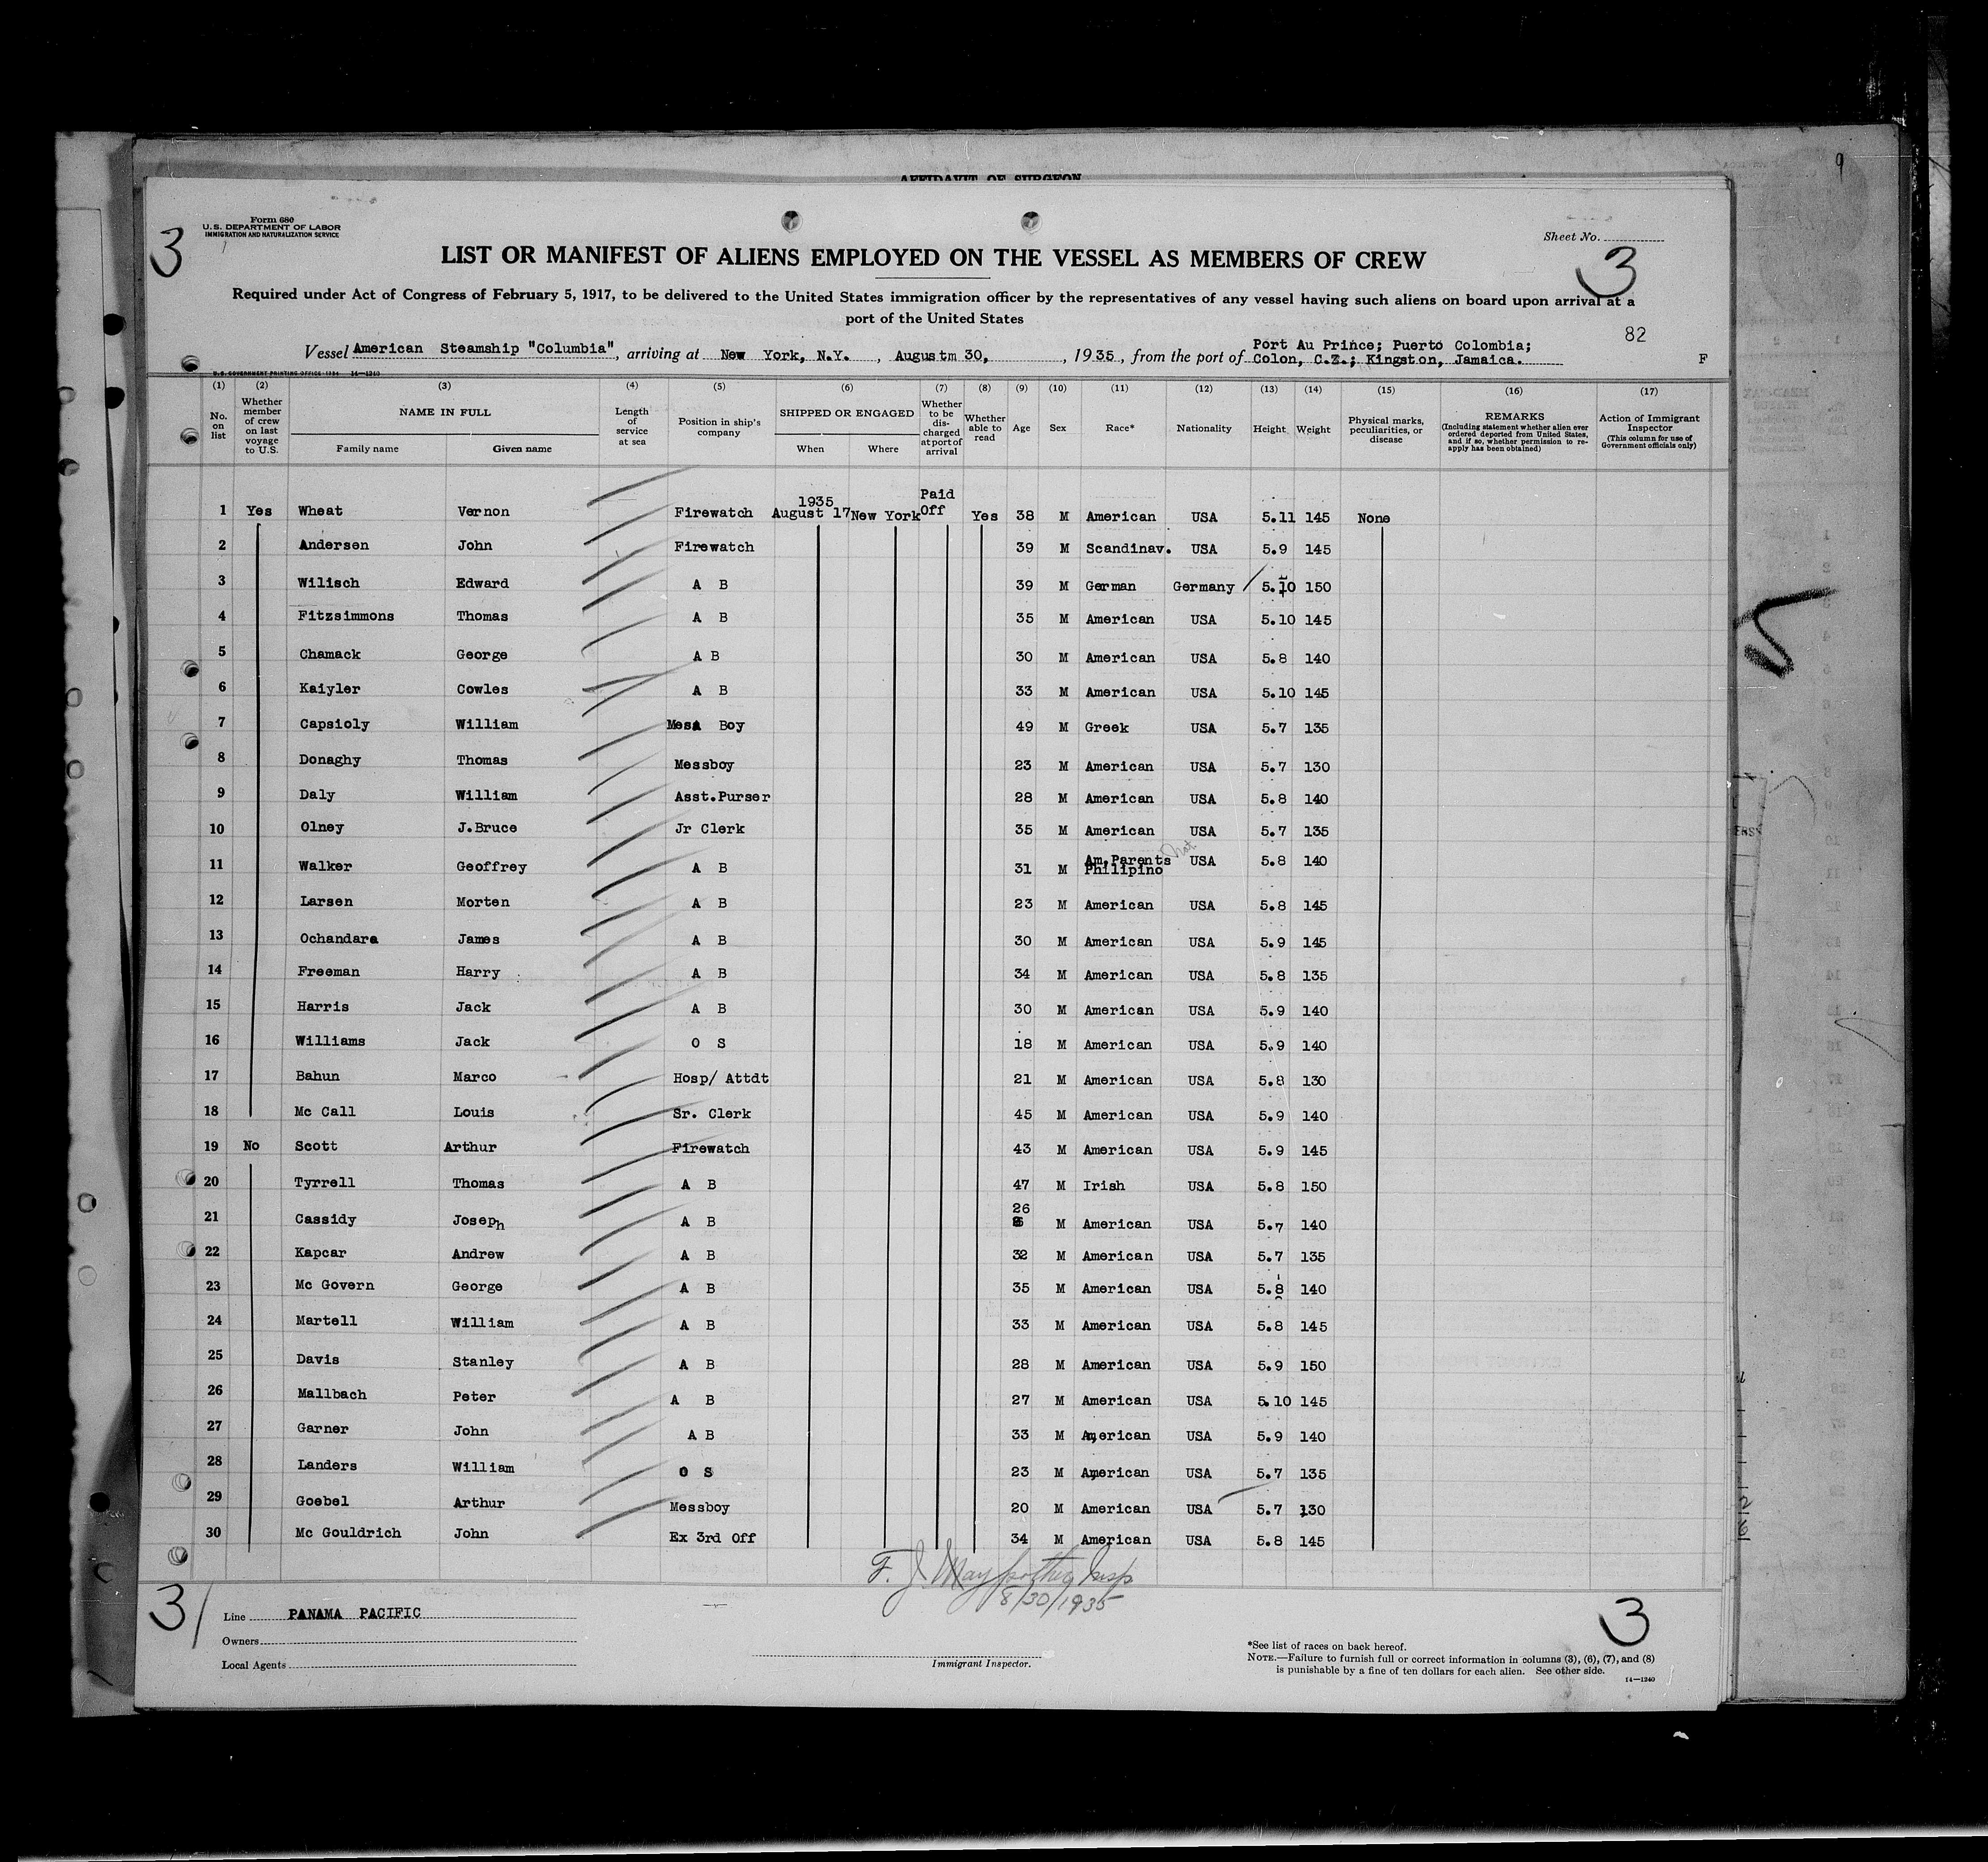 AFFIDAVIT OF SURGEON
9
Form 680
U.S. DEPARTMENT OF LABOR
IMMIGRATION AND NATURALIZATION SERVICE
3
Sheet No.
3
LIST OR MANIFEST OF ALIENS EMPLOYED ON THE VESSEL AS MEMBERS OF CREW
Required under Act of Congress of February 5, 1917, to be delivered to the United States immigration officer by the representatives of any vessel having such aliens on board upon arrival at a
port of the United States
82
Vessel American Steamship "Columbia", arriving at New York, N.Y., Augustm 30, , 1935, from the port of Port Au Prince; Puerto Colombia;
Colon, C.Z.; Kingston, Jamaica.
F
U.S. GOVERNMENT PRINTING OFFICE 1934 14—1240
(1) (2) (3) (4) (5) (6) (7) (8) (9) (10) (11) (12) (13) (14) (15) (16) (17)
No. on list
Whether member of crew on last voyage to U.S.
NAME IN FULL
Family name Given name
Length of service at sea
Position in ship's company
SHIPPED OR ENGAGED
When Where
Whether to be discharged at port of arrival
Whether able to read
Age Sex Race* Nationality Height Weight
Physical marks, peculiarities, or disease
REMARKS
(Including statement whether alien ever ordered deported from United States, and if so, whether permission to re-apply has been obtained)
Action of Immigrant Inspector
(This column for use of Government officials only)
1 Yes Wheat Vernon Firewatch 1935 August 17 New York Paid Off Yes 38 M American USA 5.11 145 None
2 Andersen John Firewatch 39 M Scandinav. USA 5.9 145
3 Wilisch Edward A B 39 M German Germany 5.10 150
4 Fitzsimmons Thomas A B 35 M American USA 5.10 145
5 Chamack George A B 30 M American USA 5.8 140
6 Kaiyler Cowles A B 33 M American USA 5.10 145
7 Capsioly William Mess Boy 49 M Greek USA 5.7 135
8 Donaghy Thomas Messboy 23 M American USA 5.7 130
9 Daly William Asst.Purser 28 M American USA 5.8 140
10 Olney J.Bruce Jr Clerk 35 M American USA 5.7 135
11 Walker Geoffrey A B 31 M Am.Parents Philipino Nat USA 5.8 140
12 Larsen Morten A B 23 M American USA 5.8 145
13 Ochandara James A B 30 M American USA 5.9 145
14 Freeman Harry A B 34 M American USA 5.8 135
15 Harris Jack A B 30 M American USA 5.9 140
16 Williams Jack O S 18 M American USA 5.9 140
17 Bahun Marco Hosp/ Attdt 21 M American USA 5.8 130
18 Mc Call Louis Sr. Clerk 45 M American USA 5.9 140
19 No Scott Arthur Firewatch 43 M American USA 5.9 145
20 Tyrrell Thomas A B 47 M Irish USA 5.8 150
21 Cassidy Joseph A B 26 M American USA 5.7 140
22 Kapcar Andrew A B 32 M American USA 5.7 135
23 Mc Govern George A B 35 M American USA 5.8 140
24 Martell William A B 33 M American USA 5.8 145
25 Davis Stanley A B 28 M American USA 5.9 150
26 Mallbach Peter A B 27 M American USA 5.10 145
27 Garner John A B 33 M American USA 5.9 140
28 Landers William O S 23 M American USA 5.7 135
29 Goebel Arthur Messboy 20 M American USA 5.7 130
30 Mc Gouldrich John Ex 3rd Off 34 M American USA 5.8 145
F. J. Maypother Insp
8/30/1935
3
Line PANAMA PACIFIC
Owners
Local Agents
Immigrant Inspector.
3
*See list of races on back hereof.
NOTE.—Failure to furnish full or correct information in columns (3), (6), (7), and (8)
is punishable by a fine of ten dollars for each alien. See other side.
14—1240